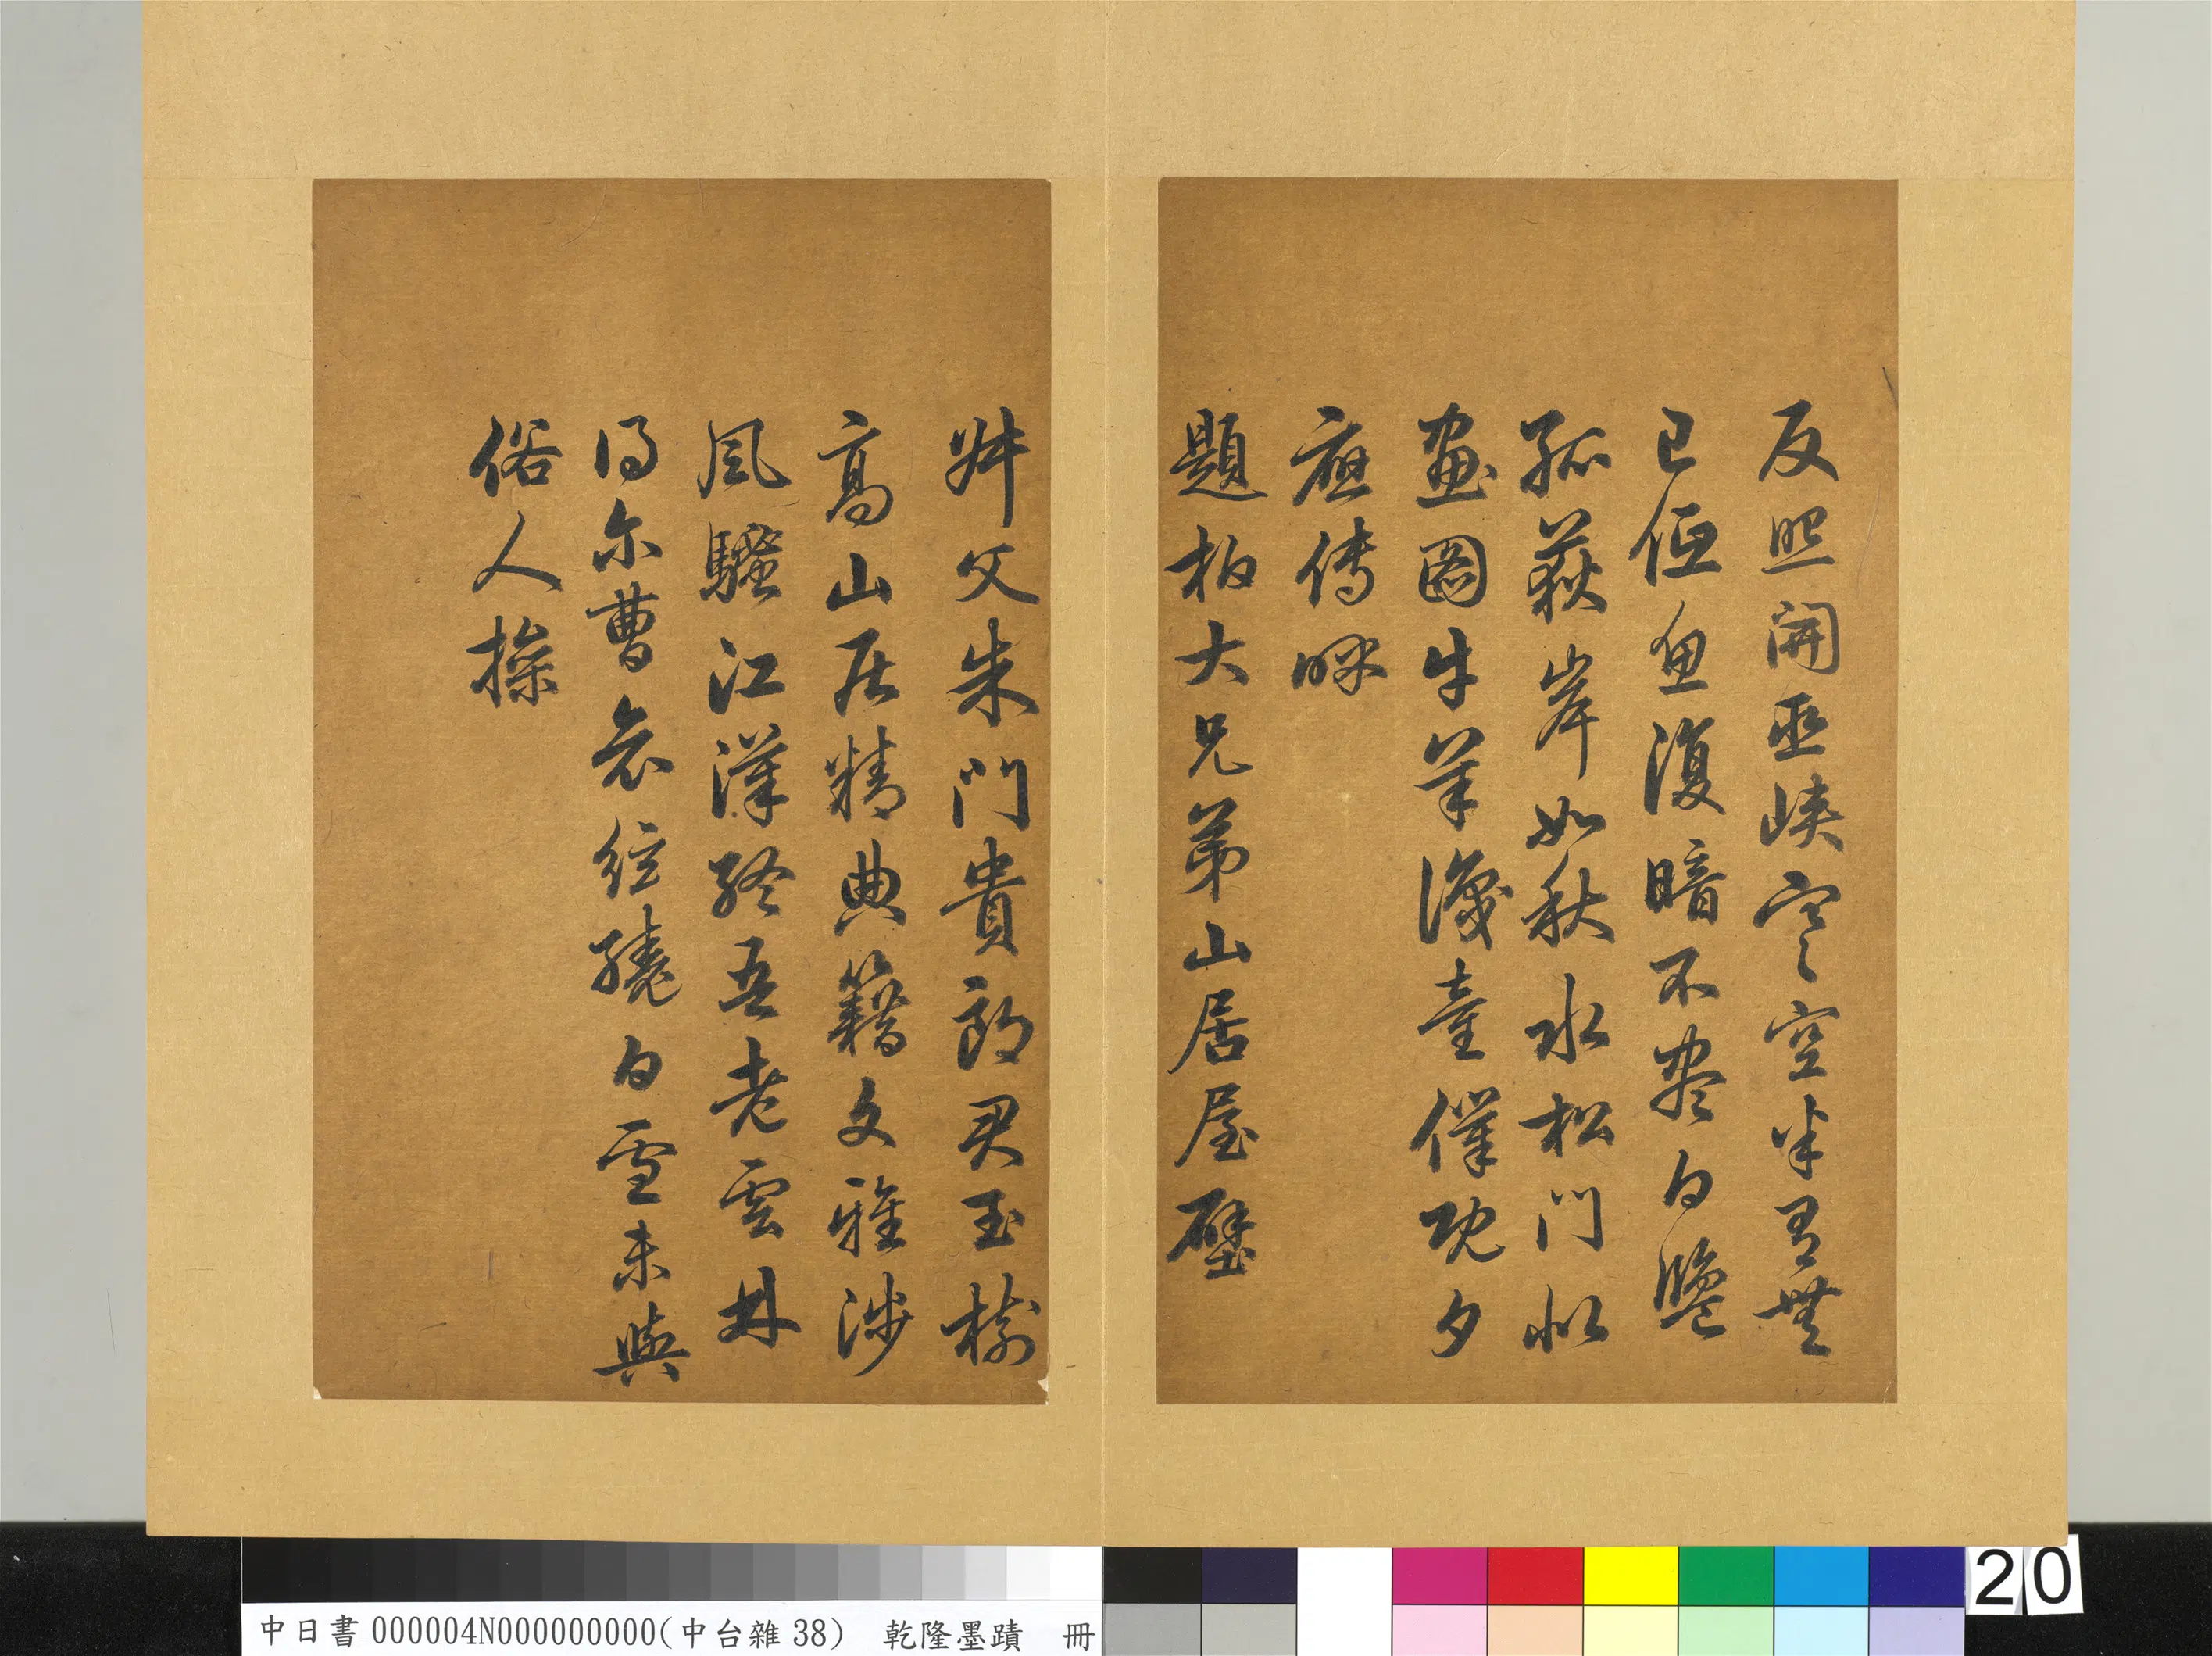 反照開巫峽寒空半有無
已低魚復暗不盡白鹽
孤荻岸如秋水松門似
畫圖牛羊識童僕既夕
應傳呼
題柏大兄弟山居屋壁
叔父朱門貴郎君玉樹
高山居精典籍文雅涉
風騷江漢終吾老雲林
得尔曹哀絃繞白雪未與
俗人操
中日書000004N000000000(中台雜38) 乾隆墨蹟 冊
20